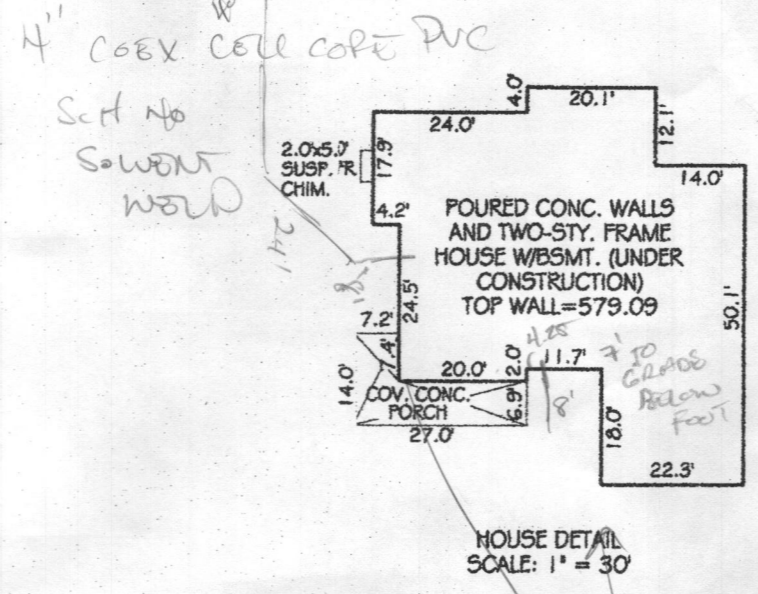 4" COEX CELL CORE PVC
SCH 40
SOLVENT
WELD
4.0'
20.1'
24.0'
12.1'
2.0'x5.0'
SUSP. FR.
CHIM.
17.9'
14.0'
4.2'
POURED CONC. WALLS
AND TWO-STY. FRAME
HOUSE W/BSMT. (UNDER
CONSTRUCTION)
TOP WALL=579.09
24'
8'
24.5'
50.1'
7.2'
7.4'
4.25
20.0'
2.0'
11.7'
7' TO
GRADE
BELOW
FOOT
14.0'
COV. CONC.
PORCH
6.9'
8'
18.0'
27.0'
22.3'
HOUSE DETAIL
SCALE: 1" = 30'